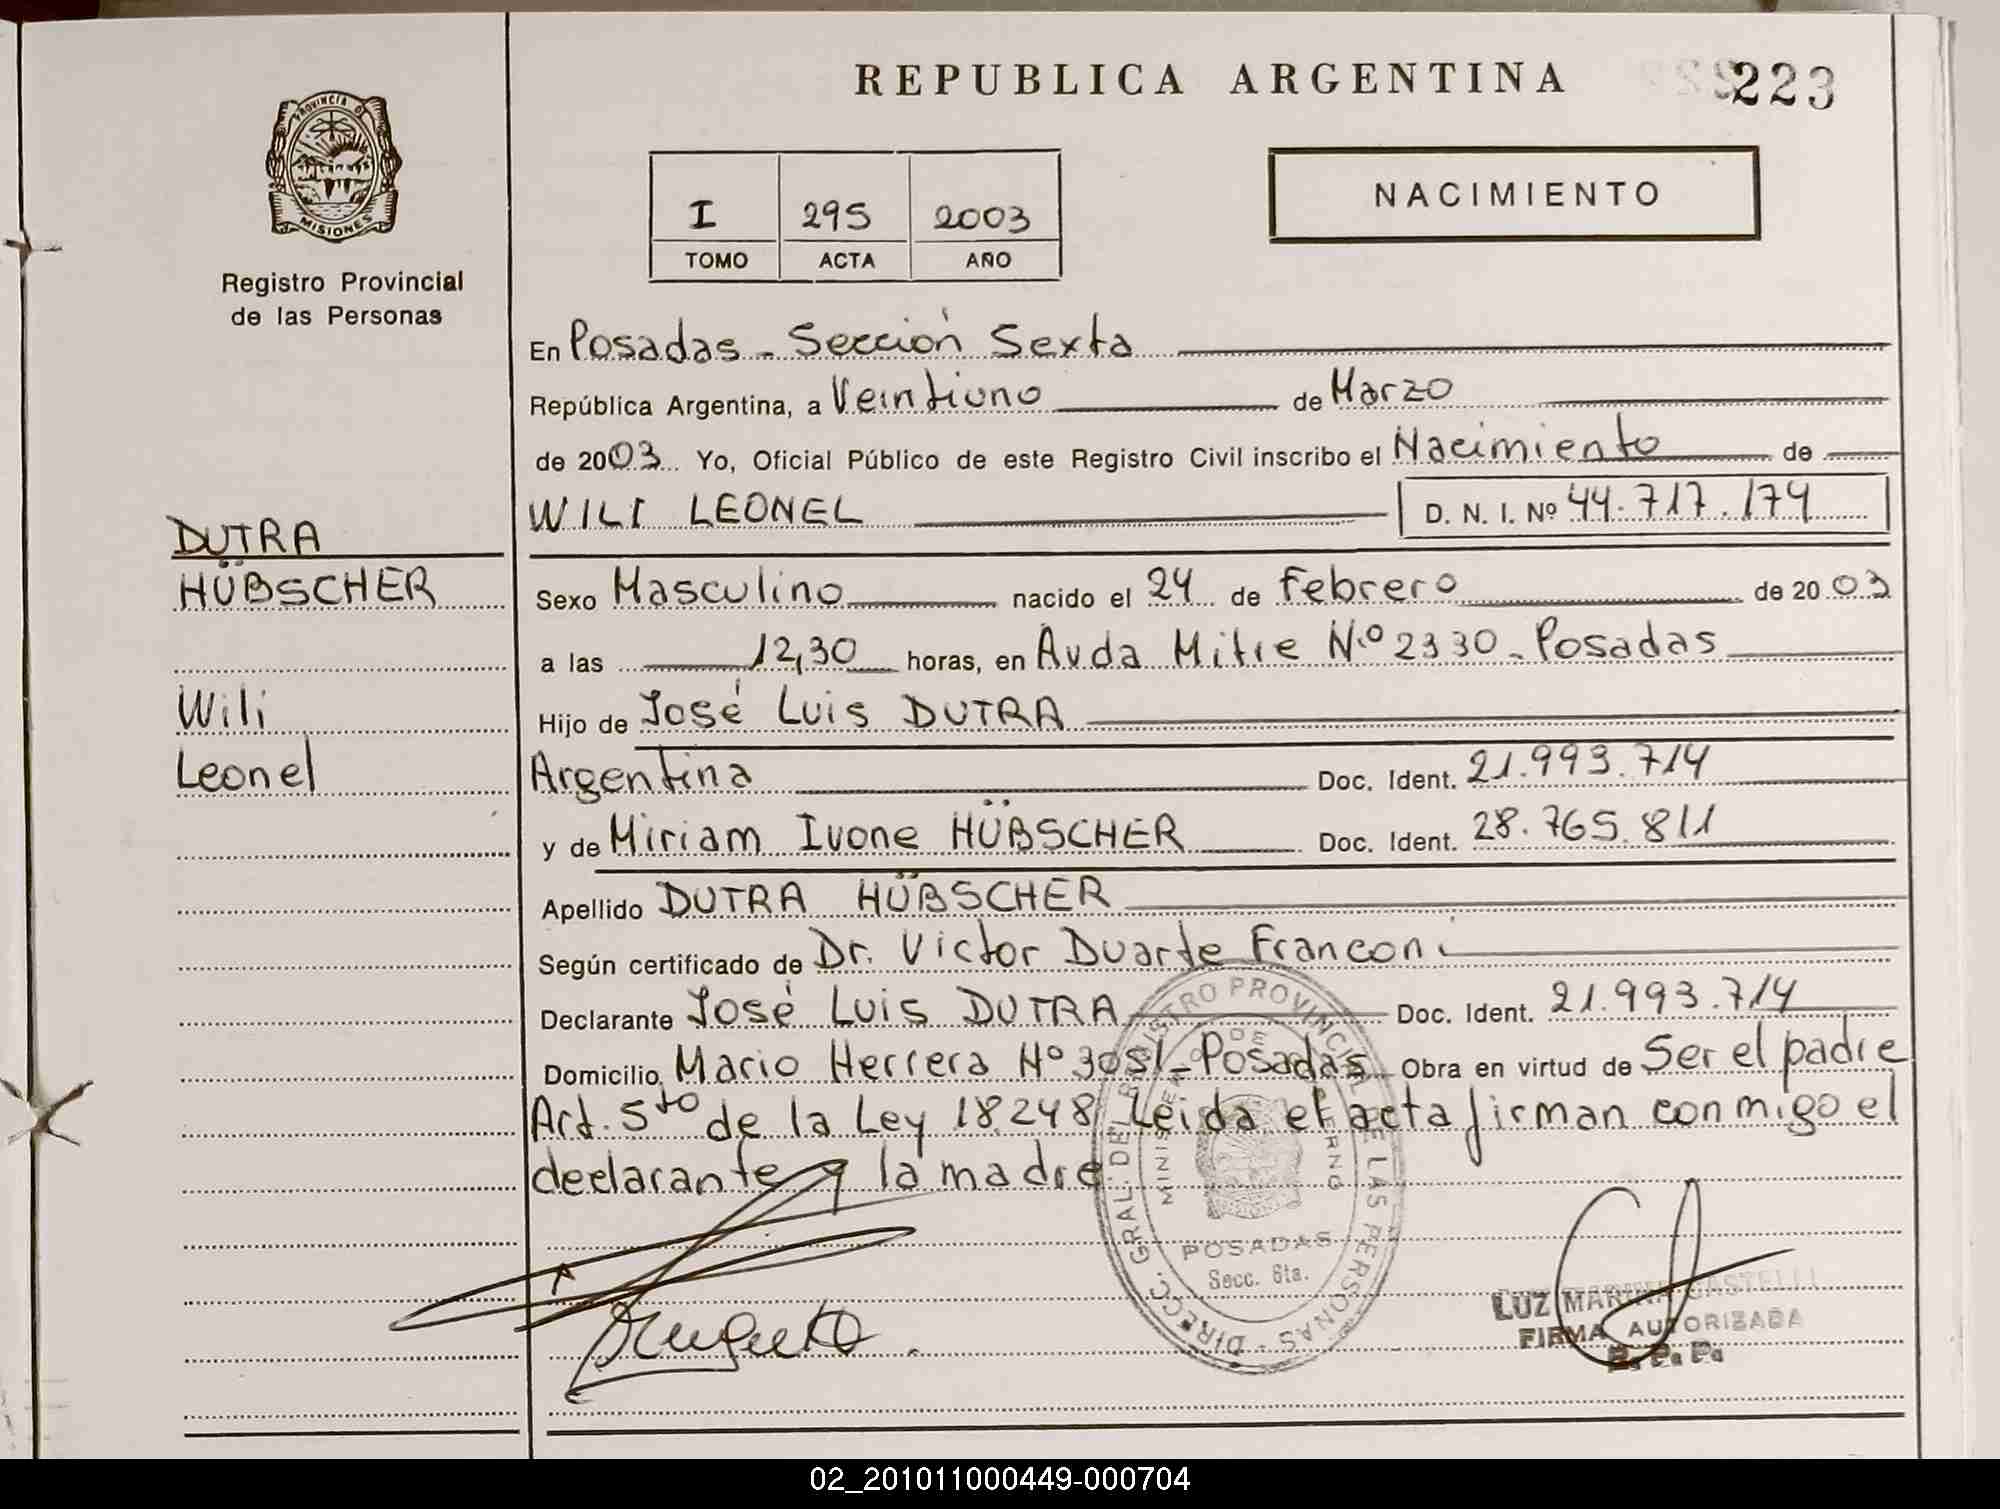 REPUBLICA ARGENTINA
223
PROVINCIA DE
MISIONES
Registro Provincial
de las Personas
I 295 2003
TOMO ACTA AÑO
NACIMIENTO
En Posadas - Sección Sexta
República Argentina, a Veintiuno de Marzo
de 2003 Yo, Oficial Público de este Registro Civil inscribo el Nacimiento de
WILI LEONEL D. N. I. Nº 44.717.174
DUTRA
HÜBSCHER
Sexo Masculino nacido el 24 de Febrero de 2003
a las 12,30 horas, en Avda Mitre Nº 2330 - Posadas
Wili
Hijo de José Luis DUTRA
Leonel
Argentina Doc. Ident. 21.993.714
y de Miriam Ivone HÜBSCHER Doc. Ident. 28.765.811
Apellido DUTRA HÜBSCHER
Según certificado de Dr. Victor Duarte Franconi
Declarante José Luis DUTRA Doc. Ident. 21.993.714
Domicilio Mario Herrera Nº 3051 - Posadas Obra en virtud de Ser el padre
Art. 5to de la Ley 18.248 Leida el acta firman conmigo el
declarante y la madre
DIRECC. GRAL. DEL REGISTRO PROVINCIAL DE LAS PERSONAS
POSADAS
Secc. 6ta.
LUZ MARINA CASTELLI
FIRMA AUTORIZADA
02_201011000449-000704